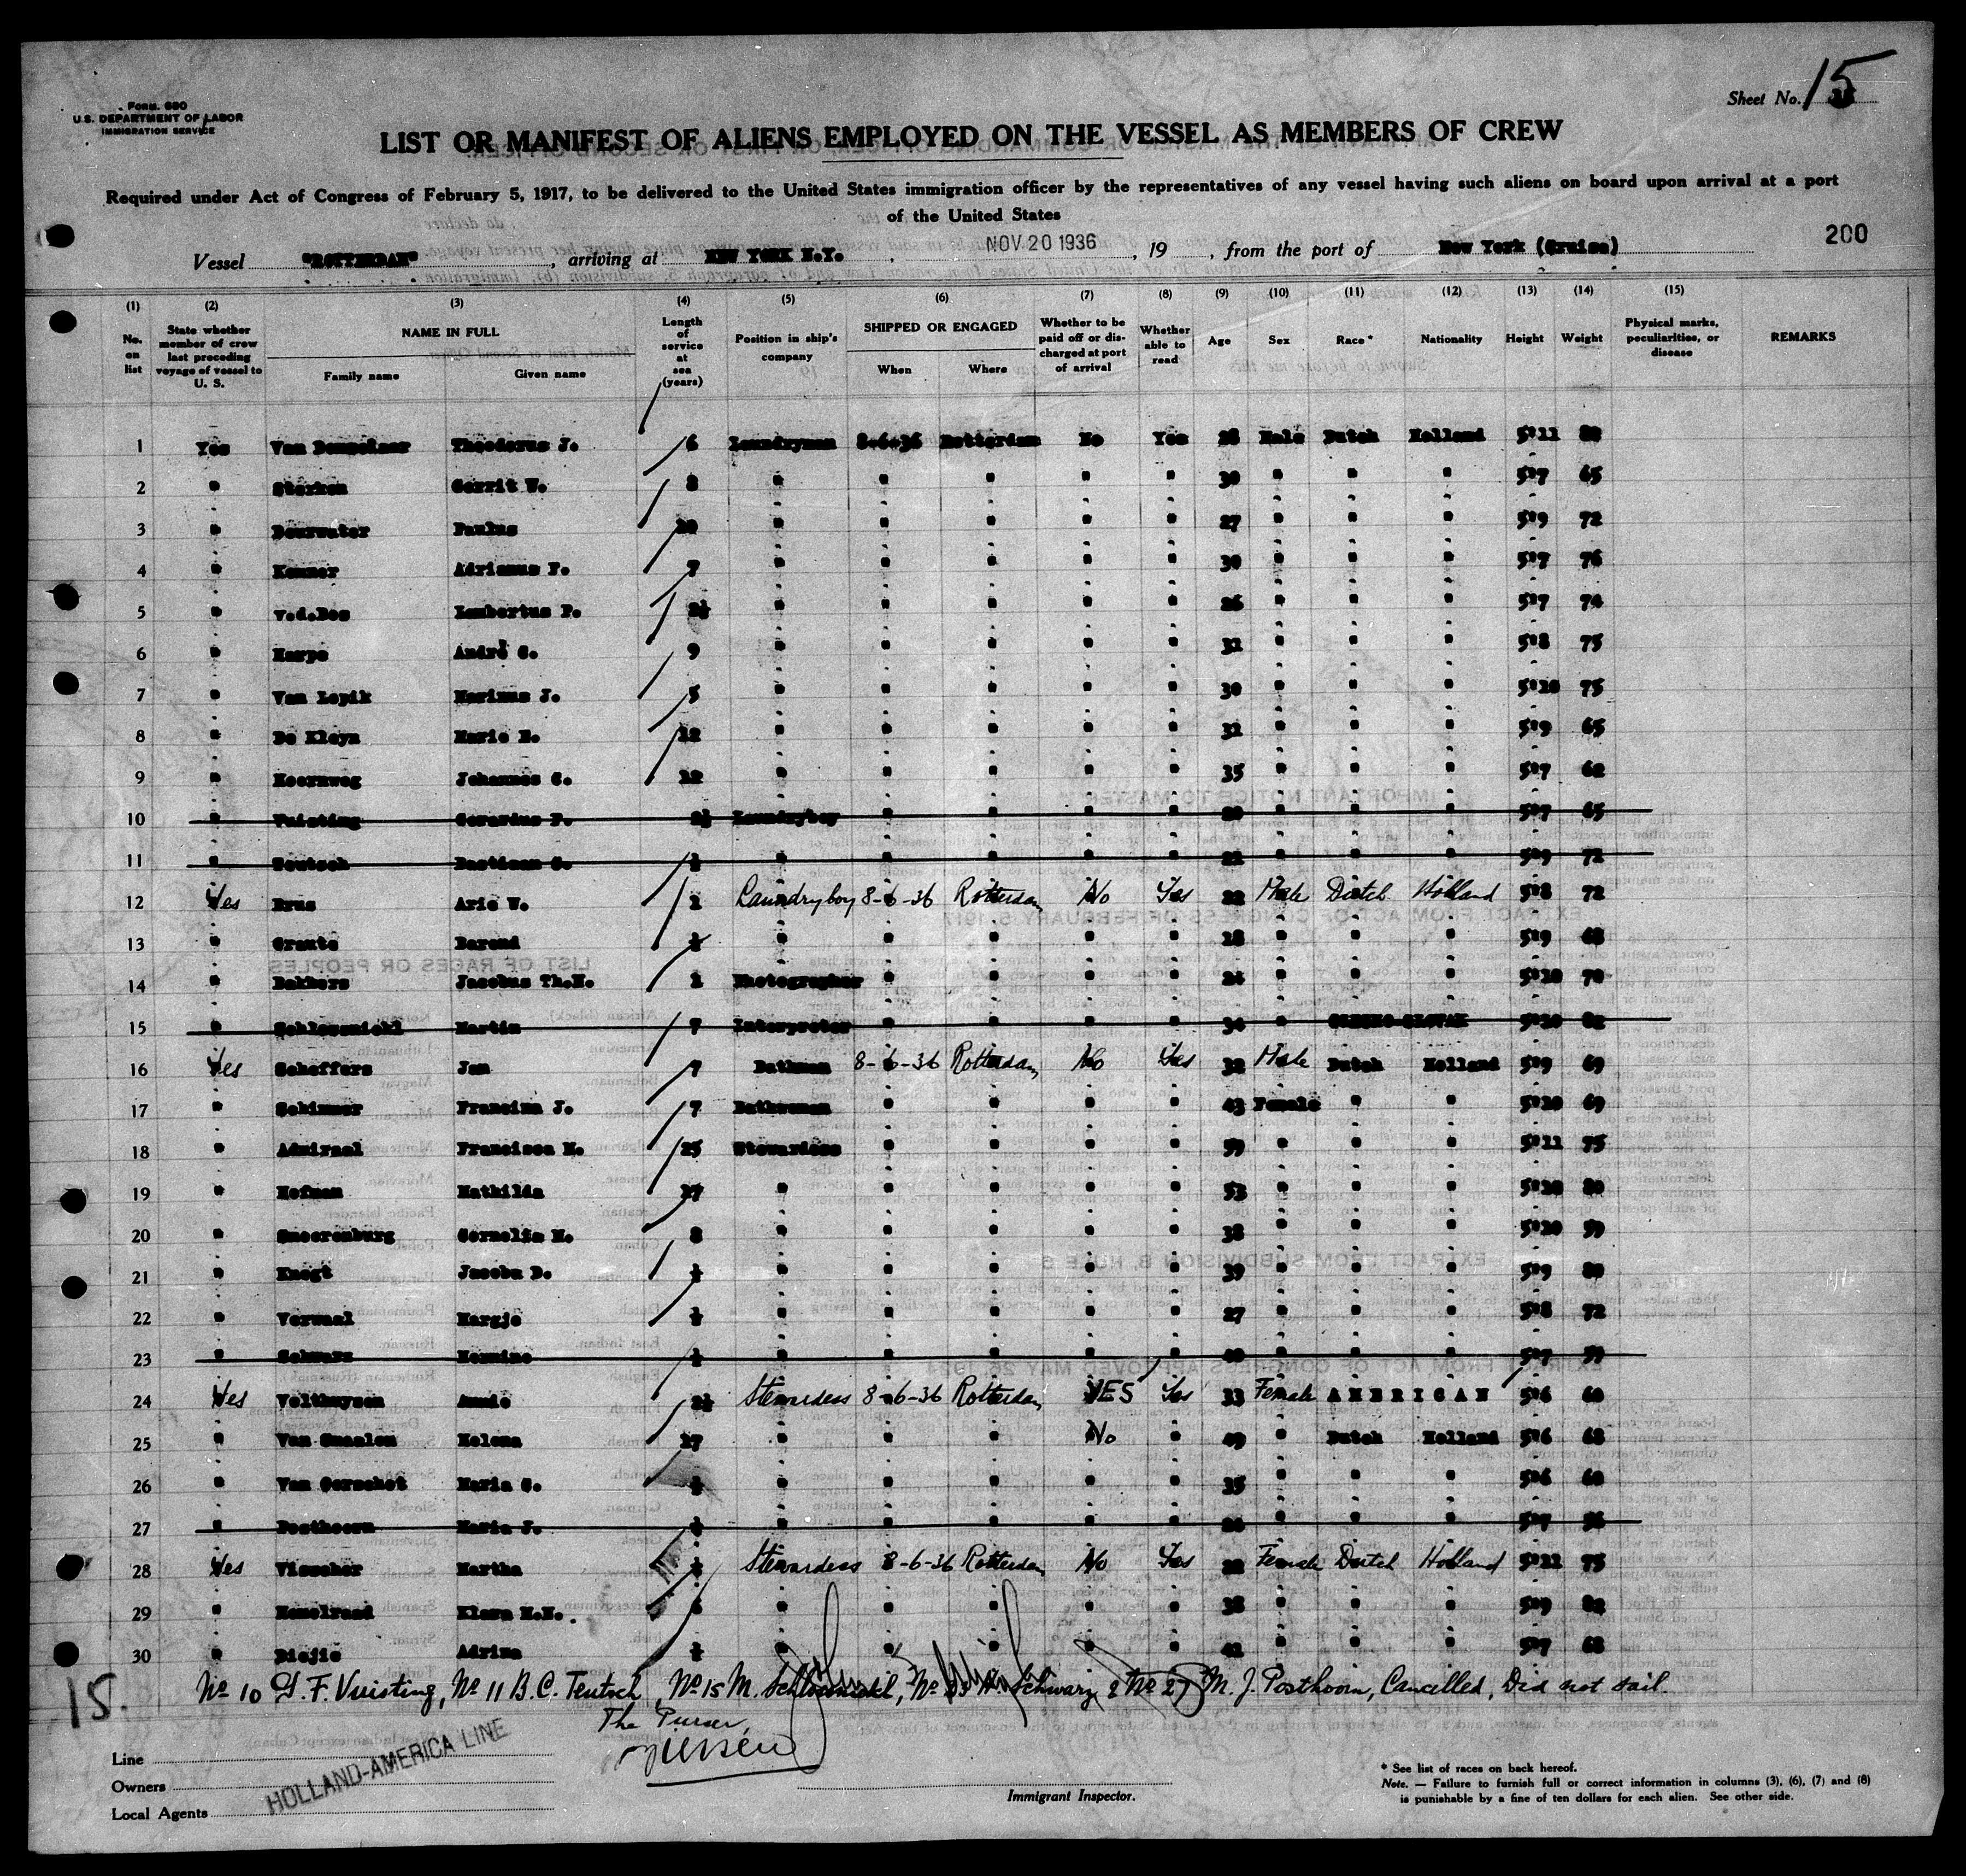 Form 680
U.S. DEPARTMENT OF LABOR
IMMIGRATION SERVICE
Sheet No. 15
LIST OR MANIFEST OF ALIENS EMPLOYED ON THE VESSEL AS MEMBERS OF CREW
Required under Act of Congress of February 5, 1917, to be delivered to the United States immigration officer by the representatives of any vessel having such aliens on board upon arrival at a port
of the United States
200
Vessel "ROTTERDAM", arriving at NEW YORK N.Y., NOV 20 1936, 19, from the port of New York (Cruise)
(1) (2) (3) (4) (5) (6) (7) (8) (9) (10) (11) (12) (13) (14) (15)
No. on list State whether member of crew last preceding voyage of vessel to U. S. NAME IN FULL Family name Given name Length of service at sea (years) Position in ship's company SHIPPED OR ENGAGED When Where Whether to be paid off or discharged at port of arrival Whether able to read Age Sex Race* Nationality Height Weight Physical marks, peculiarities, or disease REMARKS
1 Yes Van Theodorus J. 6 Laundryman 8-6-36 Rotterdam No Yes 28 Male Dutch Holland 5'11
2 " Sterken Gerrit W. 8 " " " " " 30 " " " 5'7 65
3 " Paulus " " " " " 27 " " " 5'9 72
4 " Adrianus F. 7 " " " " " 30 " " " 5'7 76
5 " v.d.Bos Lambertus P. 2½ " " " " " 26 " " " 5'7 74
6 " Harpe André C. 9 " " " " " 32 " " " 5'8 75
7 " Van Lopik Marinus J. 5 " " " " " 30 " " " 5'10 75
8 " De Kleyn Marie H. 12 " " " " " 32 " " " 5'9 65
9 " Hoornweg Johannes C. 12 " " " " " 35 " " " 5'7 62
10 " Vuisting Gerardus F. 2½ Laundryboy " " " " " " " 5'7 65
11 " Teutsch Bastiaan C. ½ " " " " " " " " 5'9 72
12 Yes Brus Arie W. 1 Laundryboy 8-6-36 Rotterdam No Yes 22 Male Dutch Holland 5'8 72
13 " Barend ½ " " " " " 18 " " " 5'9 68
14 " Bakkers Jacobus Th.H. 1 Photographer " " " " 24 " " " 5'10 70
15 " Martin 7 Interpreter " " " " 34 " CZECHO-SLOVAK 5'10 82
16 Yes Scheffers Jan 7 Bathman 8-6-36 Rotterdam No Yes 32 Male Dutch Holland 5'9 69
17 " Schinner Francina J. 7 Bathwoman " " " " 43 Female " " 5'10 69
18 " Admiraal Francisca M. 25 Stewardess " " " " 59 " " " 5'11 75
19 " Hofman Mathilda 27 " " " " " 53 " " " 5'10 80
20 " Smeerenburg Cornelia M. 8 " " " " " 38 " " " 5'10 59
21 " Knegt Jacoba D. ½ " " " " " 39 " " " 5'9 80
22 " Verwaal Margje ½ " " " " " 27 " " " 5'8 72
23 " Schwarz Hermine ½ " " " " " " " " 5'7 59
24 Yes Velthuysen Annie 2½ Stewardess 8-6-36 Rotterdam YES Yes 33 Female AMERICAN 5'6 60
25 " Van Helena 17 " " " No " 49 " Dutch Holland 5'6 68
26 " Van Gorschot Maria C. ½ " " " " " 35 " " " 5'6 60
27 " Posthoorn Maria J. ½ " " " " " " " " 5'7
28 Yes Visscher Martha ½ Stewardess 8-6-36 Rotterdam No Yes Female Dutch Holland 75
29 " Klara M.H. 6 " " " " " 38 " " " 5'9 82
30 " Adrina ½ " " " " " 42 " " " 5'7 68
15. No 10 G. F. Vuisting, No 11 B. C. Teutsch, No 15 M. , No 23 H. Schwarz & No 27 M. J. Posthoorn, Cancelled, Did not sail.
The Purser,
Line
Owners
Local Agents
HOLLAND-AMERICA LINE
Immigrant Inspector.
* See list of races on back hereof.
Note. — Failure to furnish full or correct information in columns (3), (6), (7) and (8)
is punishable by a fine of ten dollars for each alien. See other side.